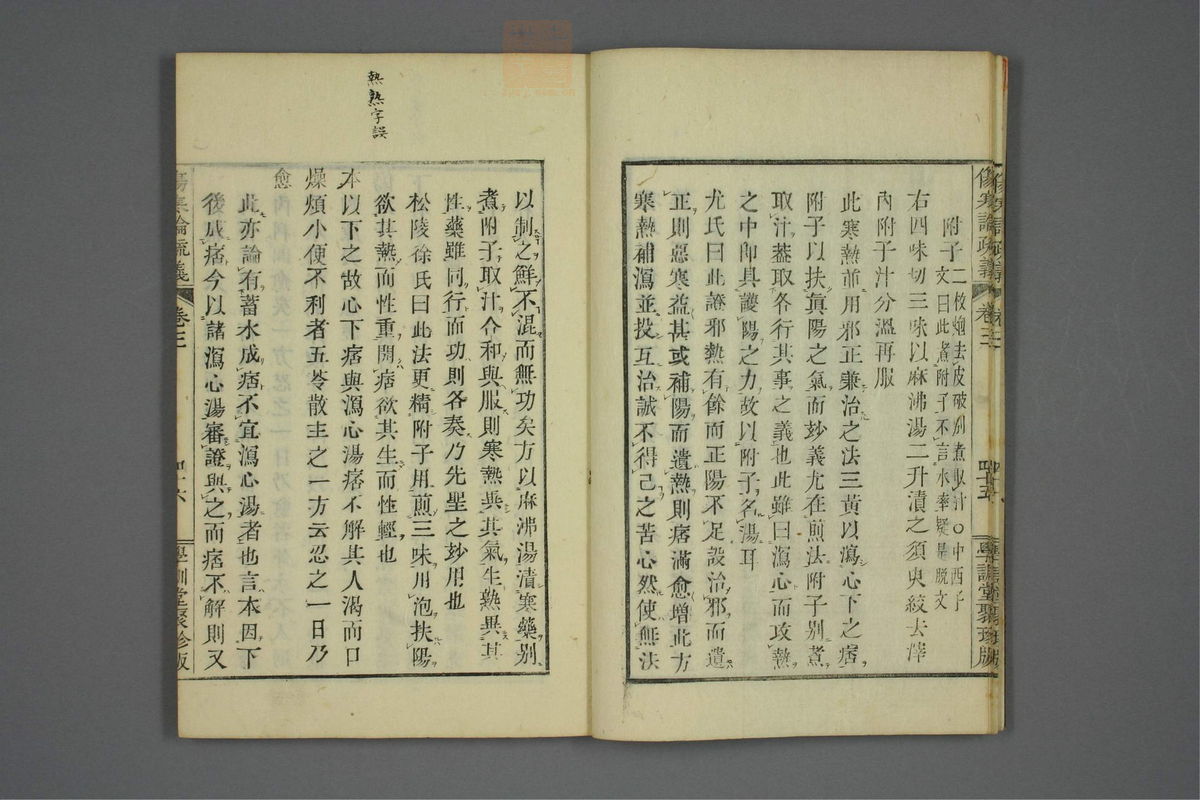 附子二枚炮去皮破別煮取汁○中西子
文曰此煮附子不言水率疑是脫文
右四味切三味以麻沸湯二升漬之須臾絞去滓
內附子汁分溫再服
此寒熱並用邪正兼治之法三黃以瀉心下之痞
附子以扶眞陽之氣而玅義尤在煎法附子別煮
取汁葢取各行其事之義也此雖曰瀉心而攻熱
之中卽具護陽之力故以附子名湯耳
尤氏曰此證邪熱有餘而正陽不足設治邪而遺
正則惡寒益甚或補陽而遺熱則痞滿愈增此方
寒熱補瀉並投互治誠不得已之苦心然使無法
傷寒論疏義 卷三 四十五 學訓堂聚珍版
以制之鮮不混而無功矣方以麻沸湯漬寒藥別
煮附子取汁合和與服則寒熱異其氣生熟異其
性藥雖同行而功則各奏乃先聖之玅用也
松陵徐氏曰此法更精附子用煎三味用泡扶陽
欲其熱而性重開痞欲其生而性輕也
本以下之故心下痞與瀉心湯痞不解其人渴而口
燥煩小便不利者五苓散主之一方云忍之一日乃
愈
此亦論有蓄水成痞不宜瀉心湯者也言本因下
後成痞今以諸瀉心湯審證與之而痞不解則又
傷寒論疏義 卷三 四十六 學訓堂聚珍版
熱熟字誤